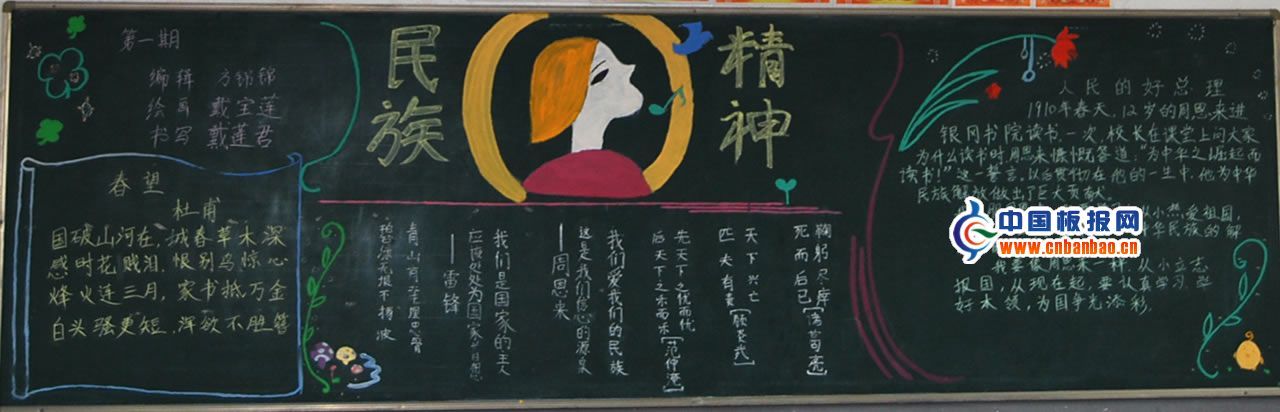 第一期
编辑 方锦锦
绘画 戴宝莲
书写 戴莲君
春望
杜甫
国破山河在,城春草木深
感时花贱泪,恨别鸟惊心
烽火连三月,家书抵万金
白头骚更短,浑欲不胜簪
民族
精神
鞠躬尽瘁
死而后已
天下兴亡
匹夫有责
先天下之忧而忧
后天下之乐而乐[范仲淹]
我们爱我们的民族
这是我们信心的源泉
——周恩来
我们是国家的主人
应该处处为国家
——雷锋
青山有幸埋忠骨
人民的好总理
1910年春天,12岁的周恩来进
银冈书院读书,一次,校长在课堂上问大家
为什么读书时,周恩来慷慨答道:"为中华之崛起而
读书!"这一誓言,以后贯彻在他的一生中,他为中华
民族解放做出了巨大贡献
小热爱祖国,
华民族的解
我要像周恩来一样,从小立志
报国,从现在起,要认真学习
好本领,为国争光添彩.
中国板报网
www.cnbanbao.cn